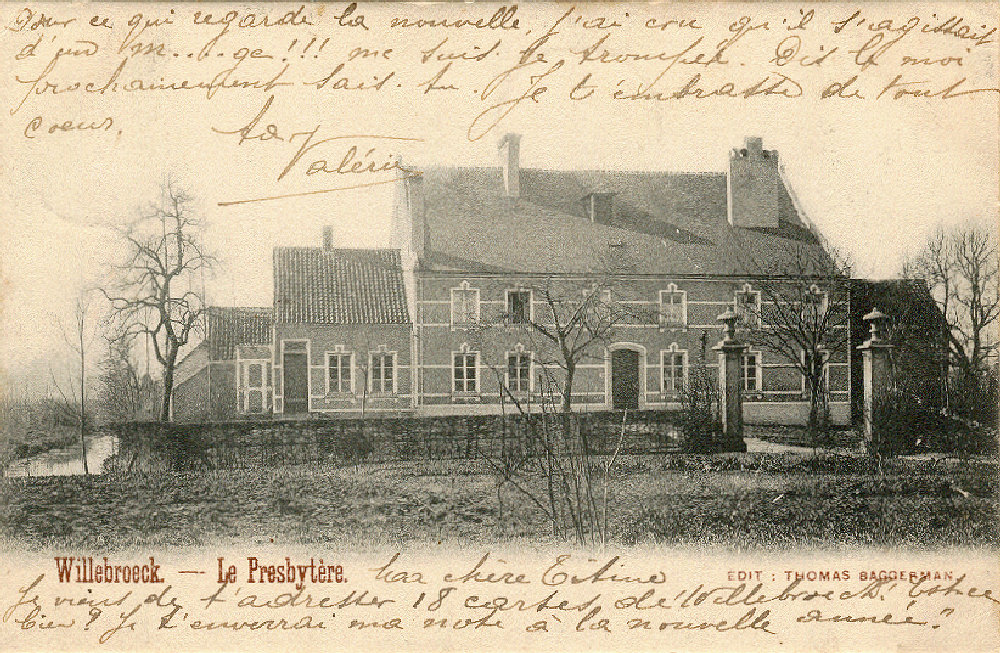 Pour ce qui regarde la nouvelle, j'ai cru qu'il s'agissait
d'un m....ge!!! me suis je trompée. Dis le moi
prochainement sais-tu. Je t'embrasse de tout
coeur.
ta Valérie
Willebroeck. — Le Presbytère.
EDIT : THOMAS BAGGERMAN.
Ma chère Titine
Je viens de t'adresser 18 cartes de Willebroeck! Est-ce
bien? Je t'enverrai ma note à la nouvelle année."